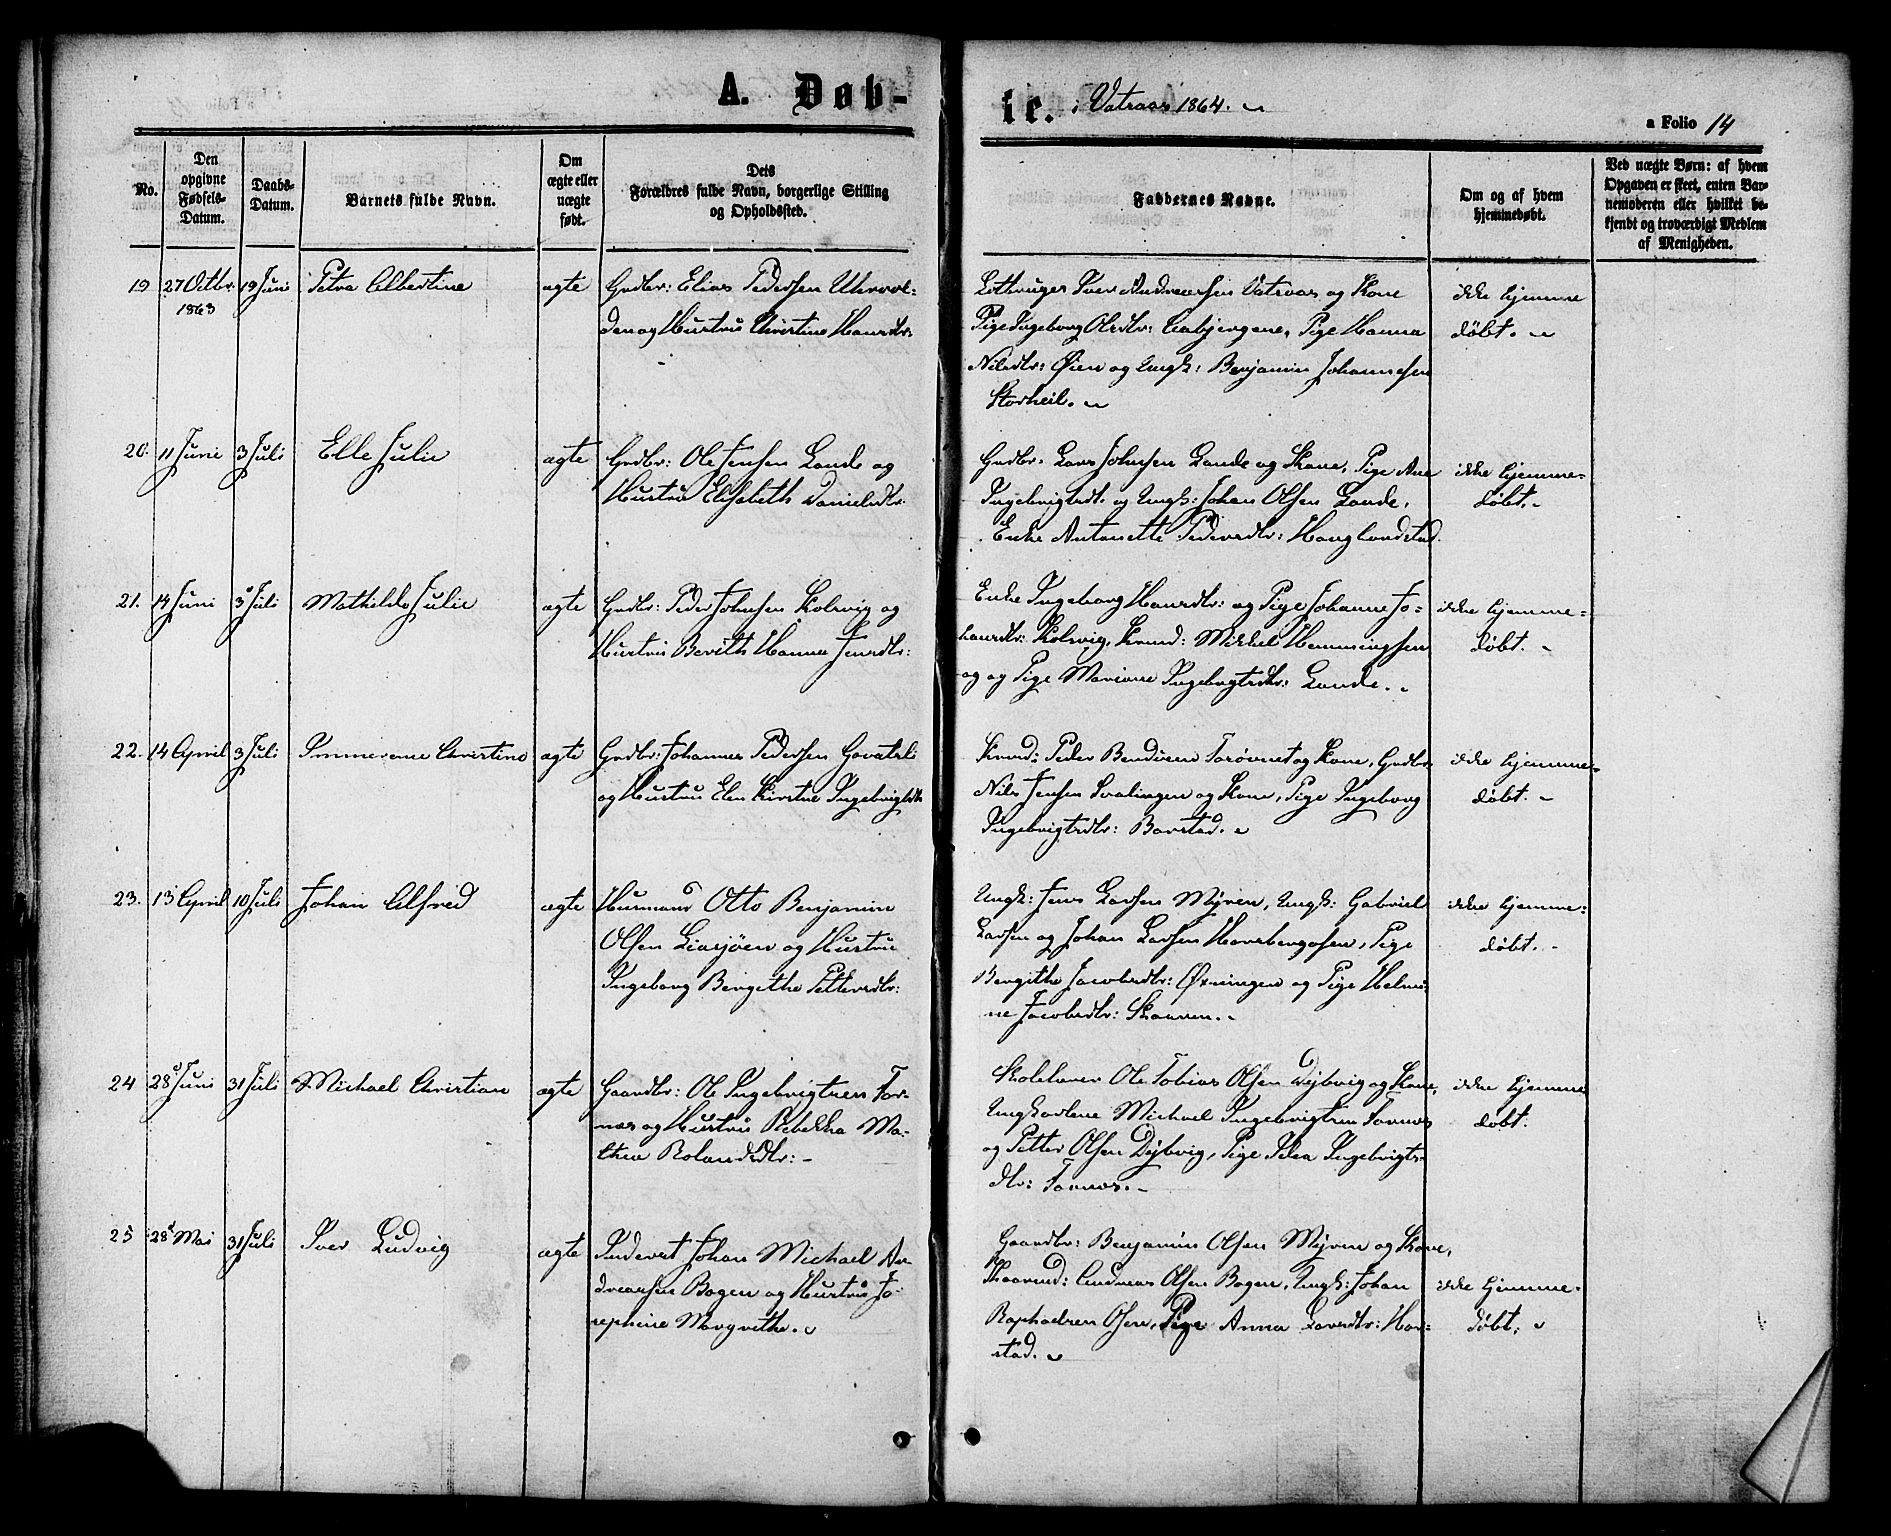 A. Døb-
te. i Vatraas 1864.
a Folio 14
No.
Den opgivne Fødsels-Datum.
Daabs-Datum.
Barnets fulde Navn.
Om ægte eller uægte født.
Dets
Forældres fulde Navn, borgerlige Stilling
og Opholdssted.
Faddernes Navne.
Om og af hvem
hjemmedøbt.
Ved uægte Børn: af hvem
Opgaven er skeet, enten Bar-
nemoderen eller hvilket be-
kjendt og troværdigt Medlem
af Menigheden.
19 27 Octbr. 1863 19 Juni Petra Albertine ægte
Grdbr: Elias Pedersen
og Hustru Christine Hansdtr:
Iver Andreassen Vatraas og Kone
Pige Ingeborg Olsdtr: Pige Hanna
Nilsdtr: Øien og Ungk: Benjamin Johannesen
Storheil.
ikke hjemme
døbt.
20. 11 Juni 3 Juli Elle Julie ægte
Grdbr: Ole Jensen Lande og
Hustru Elisabeth Danielsdtr:
Grdbr. Lars Johnsen Lande og Kone, Pige Ane
Ingebrigtsdt. og Ungk: Johan Olsen Lande,
Enke Antonette Pedersdtr: Hauglandstad.
ikke hjemme=
døbt.
21. 14 Juni 3 Juli Mathilde Julie ægte
Grdbr: Peder Johnsen Kolsvig og
Hustru Berith Hanna Jensdtr:
Enke Ingeborg Hansdtr: og Pige Johanne Jo=
hansdtr: Kolsvig, Mikkel Hemmingsen
og og Pige Mariane Ingebrigtsdtr: Lande.
ikke hjemme=
døbt.
22. 14 April 3 Juli Immerense Christine ægte
Grdbr: Johannes Pedersen
og Hustru Elen Kirstine Ingebrigtsdtr
Peder Torøvnet og Kone, Grdbr
Nils Jensen Svalingen og Kone, Pige Ingeborg
Ingebrigtsdtr: Barstad.
ikke hjemme=
døbt.
23. 13 April 10 Juli Johan Alfred ægte
Husmand Otto Benjamin
Olsen Liasjøen og Hustru
Ingeborg Bergithe Pettersdtr:
Ungk: Jens Larsen Myren, Ungk: Gabriel
Larsen og Johan Larsen Horsbergosen, Pige
Bergithe Jacobsdtr: Øxningen og Pige Helmi-
ne Jacobsdtr: Skauren.
ikke hjemme=
døbt.
24 28 Juni 31 Juli Michael Christian ægte
Gaardbr: Ole Ingebrigtsen Tor-
nes og Hustru Rebekka Ma-
thea Rolandsdtr:
Skolelærer Ole Tobias Olsen Dybvig og Kone,
Ungkarlene Michael Ingebrigtsen Tornes
og Petter Olsen Dybvig, Pige Ingebrigts-
dtr: Tornes.
ikke hjemme
døbt.
25 28 Mai 31 Juli Iver Ludvig ægte
Inderst Johan Michael An-
dreassen Bogen og Hustru Jo-
sephine Margrethe.
Gaardbr: Benjamin Olsen Myren og Kone,
Andreas Olsen Bogen, Ungk: Johan
Raphaelsen Osen, Pige Anna Larsdtr: Har-
stad.
ikke hjemme-
døbt.